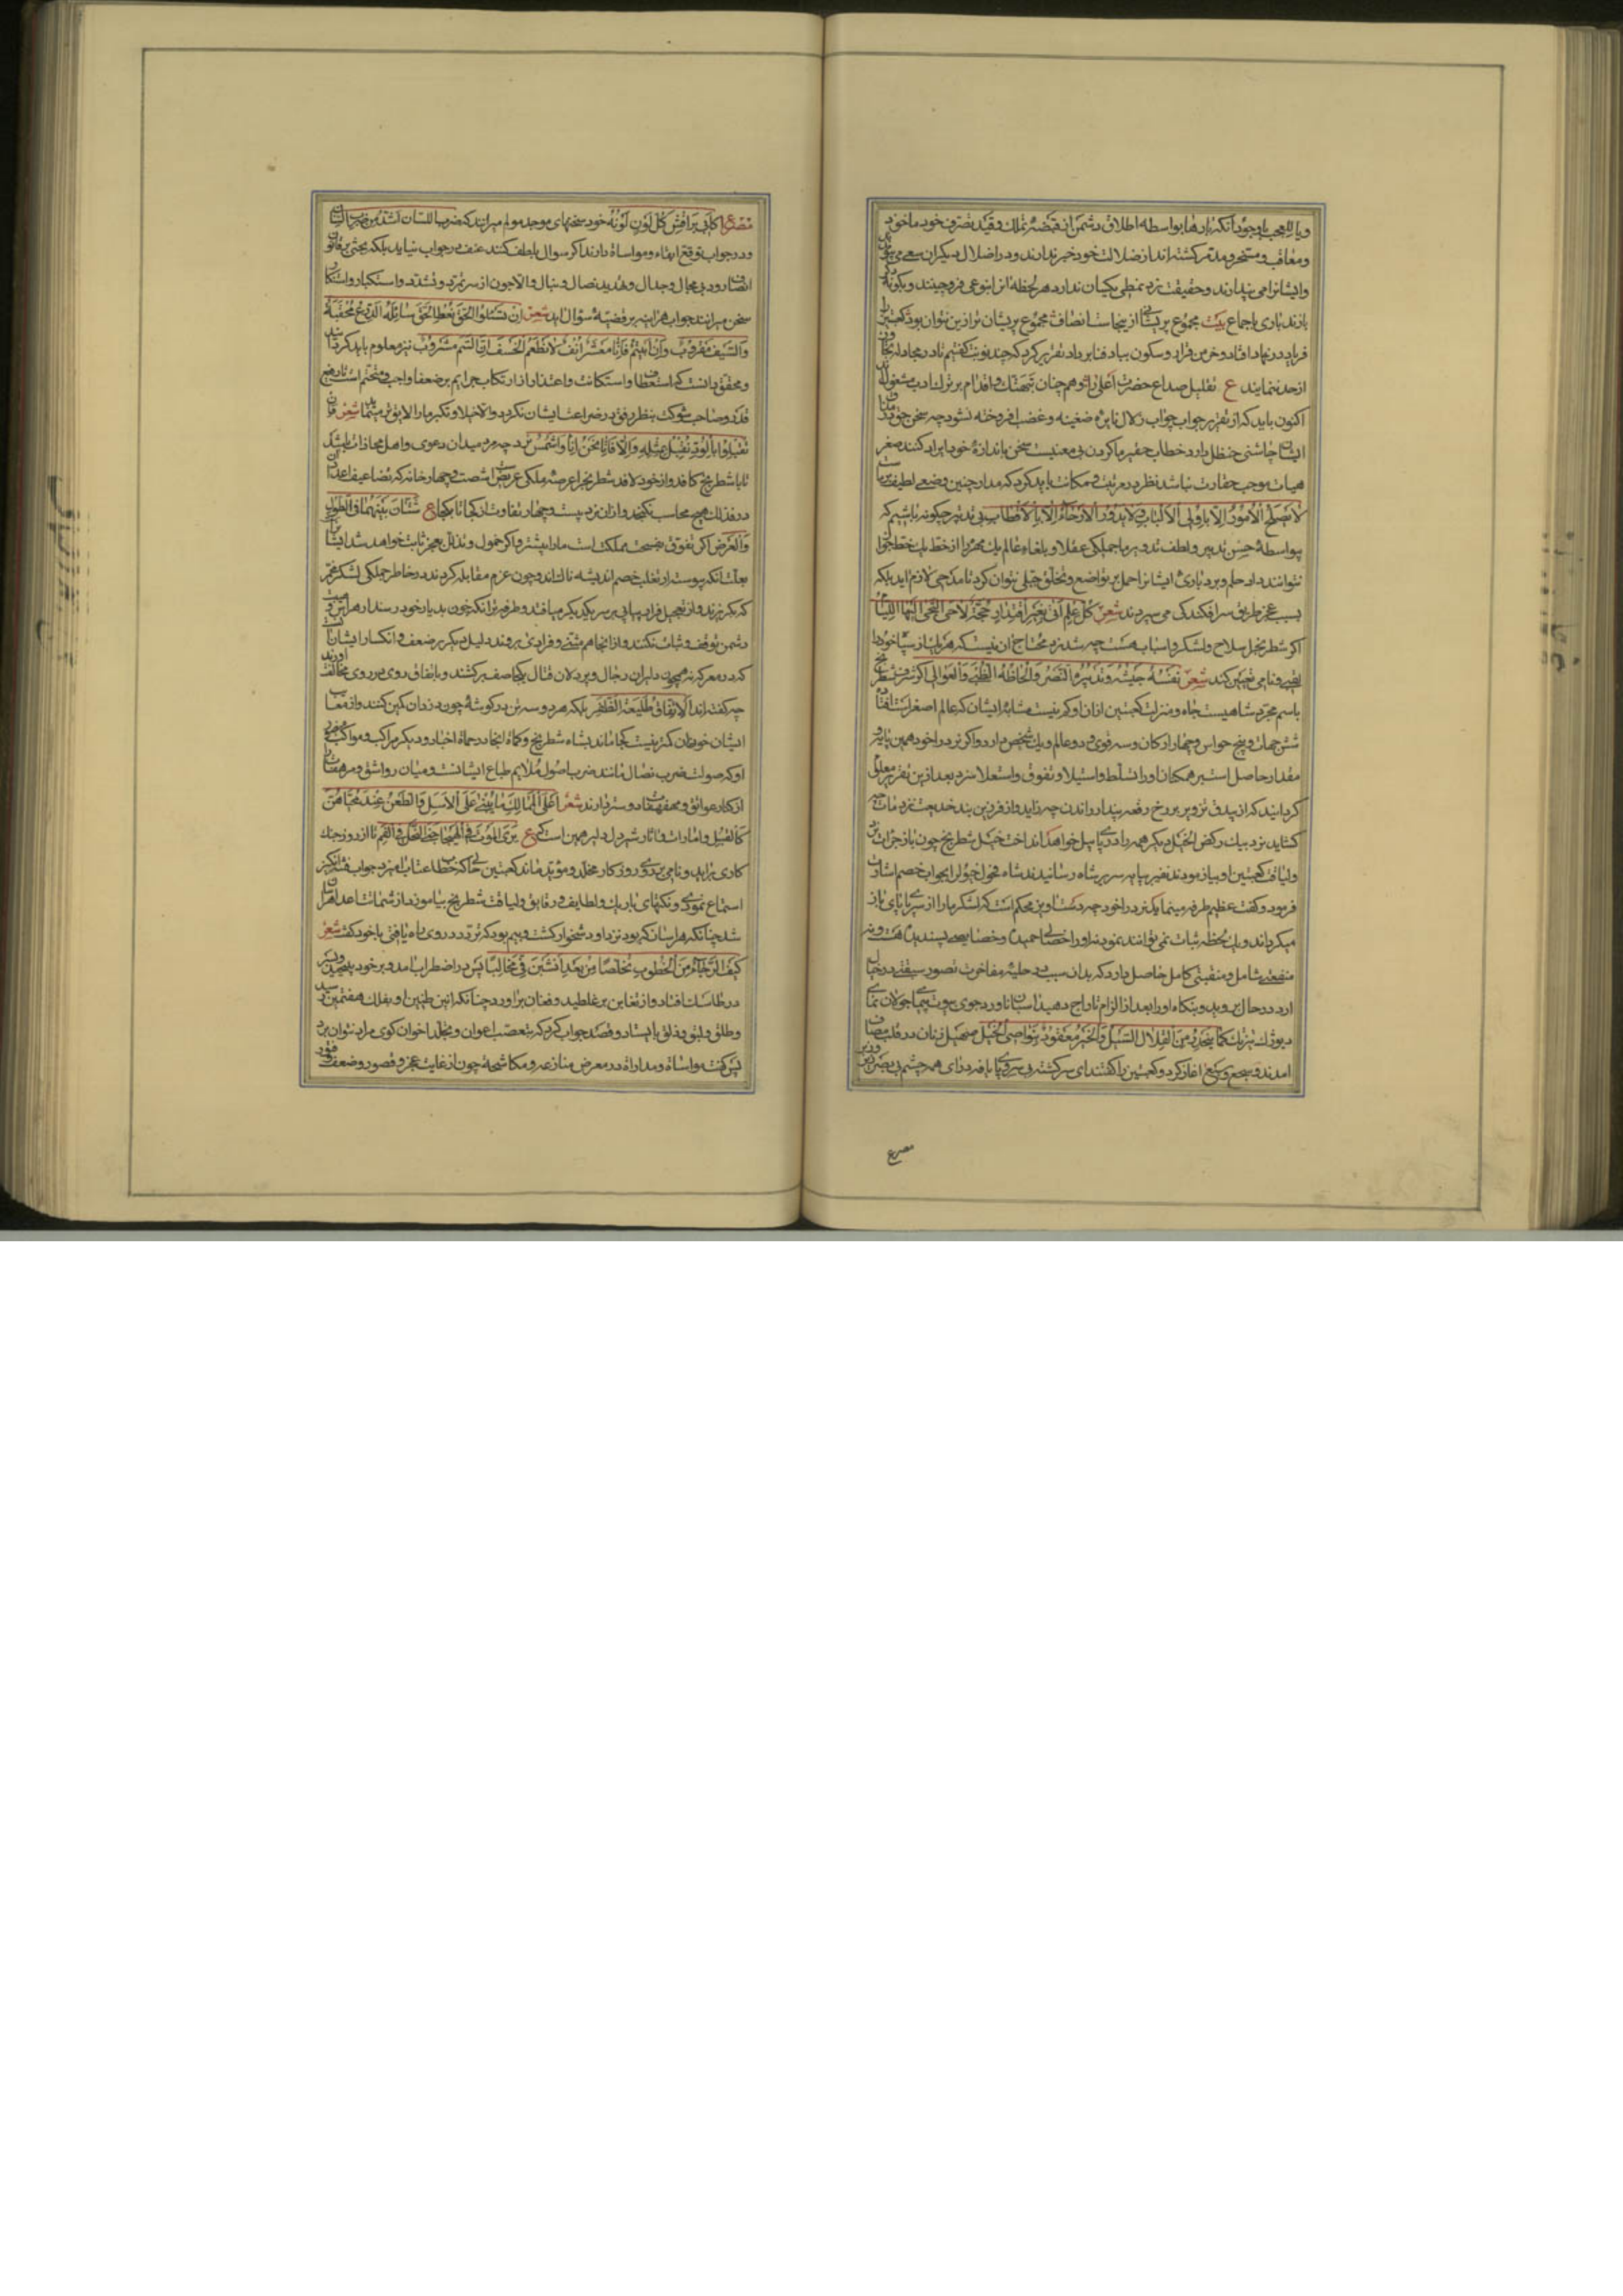 ویا للعجب باوجود آنکه بارها بواسطه اطلاق دشمن از قبضه تملک و قید تصرف خود ماخوذ
ومعاقب و مسخر و مدمر کشته اند از ضلالت خود خبر ندارند و در اضلال دیکران سعی می
وایشانرا می پندارند و حقیقت نرد بنمطی یکسان ندارد هر لحظه از نوعی فروچینند و بکونه
بازند باری باجماع بیت مجموع پریشانی از ینجاست انصاف مجموع پریشان تر ازین نتوان بود
فریاد در نهاد افتاد و خرمن قرار و سکون بباد فنا بر داد تقریر کرد که چند نوبت کفتیم تا در مجادله
از حد ننمایند ع تقلیل صداع حضرت اعلی را و همچنان
اکنون باید که از تقریر جواب چو آب زلال نایره ضغینه و غضب افروخته نشود چه سخن حق در
ایشان چاشنی حنظل دارد خطاب حقیر ما کردن بی معنیست سخن باندازه خود ایراد کنند صغر
هیات موجب حقارت نباشد نظر در مرتبت و مکانت باید کرد که مدار چنین وضعی لطیف
لا تصلح الامور الا باولی الالباب و لا تدور الارحاء الا بالاقطاب بی تدبیر چکونه باشیم که
بواسطه حسن تدبیر و لطف تدویر ما جملکی عقلا و بلغاء عالم یک مهره را از خط یک خط
نتوانند داد حلم و بردباری ایشانرا حمل بر تواضع و تخلق جبلی نتوان کرد تا مدحی لازم آید بلکه
بسبب عجز طریق سرافکندکی می سپردند شعر کل حلم اتی بغیر اقتدار حجة لاجئ الیها اللئام
اکر شطرنج بخیل سلاح و لشکر و اسباب هست چه شد نرد محتاج آن نیست که هر بار از سپاه خود
تعیین کند شعر نفسه جیشه و تدبیره النصر و الحاظه الظبی و العوالی
باسم مجرد شاهیست جاه و منزلت کعبتین از آن او کم نیست مشابه ایشان که عالم اصغر است
شش جهات و پنج حواس و چهار ارکان و سه قوی و دو عالم و یک شخص دارد و اکر نرد را خود همین
مقدار حاصل استی بر همکنان او را تسلط و استیلا و تفوق و استعلا سزد بعد از ین تقریر معلوم
کردانید که از بیدق تزویر بر رخ رقعه پندار راندن چه زاید و از فرزین بند خدیعت نرد مات
کشاید نرد بیک رکض الخیل دیکر همه را در پای پیل خواهد انداخت خیل شطرنج چون
ولیاقت کعبتین او بیازمودند نفیر بپایه سریر شاه رسانیدند شاه فحول خیول را بجواب خصم اشارت
فرمود و کفت عظیم طرفه مینماید که نرد را خود چه دست آویز محکم است که لشکر ما را از سر تا پای
میکرداند و یک لحظه ثبات نمی توانند نمود نه او را خصالی حمید و خصایصی پسندیده هست و نه
منفعتی شامل و منقبتی کامل حاصل دارد که بدان سبب در حلبه مفاخرت تصور سبقتی در خیال
آرد در حال بروید و بنکاه او را بعد از الزام تاراج دهید
کما ینحدر من القلال السیل و الخیر معقود بنواصی الخیل صهیل زنان در قلب مصاف
آمدند و سجع آغاز کرد و کعبتین را کفتند ای سرکشته بی سر و پا یاوه درای همه چشم بی بصر
مصرع
مصرع کابی براقش کل لون لونه خود سخنهای موجد مولم میرانند که ضرب اللسان اشد من ضرب السنان
و در جواب توقع ابقاء و مواساة دارند اکر سوال بلطف کنند عنف در جواب نیاید بلکه بحثی بر قانون
انصاف رود بی مجال و جدال و تهدید نصال و نبال و الا چون از سر تمرد و تشدد و استکبار و استنکار
سخن میرانند جواب هر آینه بر قضیه سؤال آید شعر ان تسئلوا الحق نعط الحق سائله الدرع محقبة
والسیف مقروب وان ابیتم فانا معشر انف لا نطعم الخسف ان السم مشروب نیز معلوم باید کرد
ومحقق دانست که استعطاف و استکانت و اعتذار از ارتکاب جرایم بر ضعفا واجب و متحتم است تا رفیع
قدر و صاحب شوکت بنظر رفق در ضراعت ایشان نکرد و الا خیلا و تکبر ما را لایق تر مینماید شعر فان
تقبلوا بالود نقبل بمثله والا فانا نحن آبا و اشمس نرد چه مرد میدان دعوی و اهل محاذات باشد
تا با شطرنج کافد و از خود لافد شطرنج را عرصه ملکی عریض شصت و چهار خانه که تضاعیف اعداد آن
در فذلک هیچ محاسب نکنجد و از آن نرد بیست و چهار تفاوت از کجا تا بکجا ع شتان بینهما فی الطول
والعرض اکر تفوق بفسحت مملکت است ما را بیشتر و اکر خمول و تذلل بعجز ثابت خواهد شد ایشان
بعلت آنکه پیوسته از تغلب خصم اندیشه ناک اند و چون عزم مقابله کردند در خاطر جملکی لشکر
که بکریزند و از تعجیل فرار پیاپی بر سر یکدیکر میافتند و طرفه تر آنکه چون بدیار خود رسند از هراس و هیبت
دشمن توقف و ثبات نکنند و از آنجا هم مثنی و فرادی بروند دلیل دیکر بر ضعف و انکسار ایشان
که در معرکه نه همچون دلیران رجال و پردلان قتال یکجا صف برکشند و باتفاق روی در روی مخالف آورند
چه کفته اند الاتفاق طلیعة الظفر بلکه هر دو سه تن در کوشه چون دزدان کمین کنند و از
ایشان خود نان کمتر نیست کجا ماند بشاه شطرنج و کماة انجاد و حماة اخیار و دیکر مراکب و مواکب
او که صولت ضرب نصال مانند ضرب اصول ملایم طباع ایشانست و میان رواشق و مرهفات را
از کنار عواتق و مهفهفات دوستر دارند شعر اعلی الممالک ما یبنی علی الاسل والطعن عند محبیهن
کالقبل و امارات و آثار شیردل دلیر همین است که ع یری الموت فی الهیجا جنی النحل فی الفم تا از روز جنک
کاری برآید و نامی بر روی روزکار مخلد و مؤبد ماند کعبتین حالی که خطاب عتاب آمیز و جواب فتنه انکیز
استماع نمود و نکتهای باریک و لطایف و دقایق و لیاقت شطرنج بیاموخت از شماتت اعدا هراسان
شد چنانکه هر آسان که بود نزد او دشخوار کشت و بیم بود که تردد در روی راه یافتی با خود کفت شعر
کیف الرجاء من الخطوب تخلصا من بعد ان انشبن فی مخالبا پس در اضطراب آمد و بر خود بپیچید
در طاسک افتاد و از تغابن بر غلطید و فغان برآورد چنانکه انین طنین او بفلک هفتمین رسید
و طلق و لبق و ذلق بایستاد و قصد جواب کرد که بتعصب اعوان و تجلد اخوان کوی مراد نتوان برد
پس کفت مواساة و مداراة در معرض منازعه و مکاشحه چون از غایت عجز و قصور و ضعف و فتور